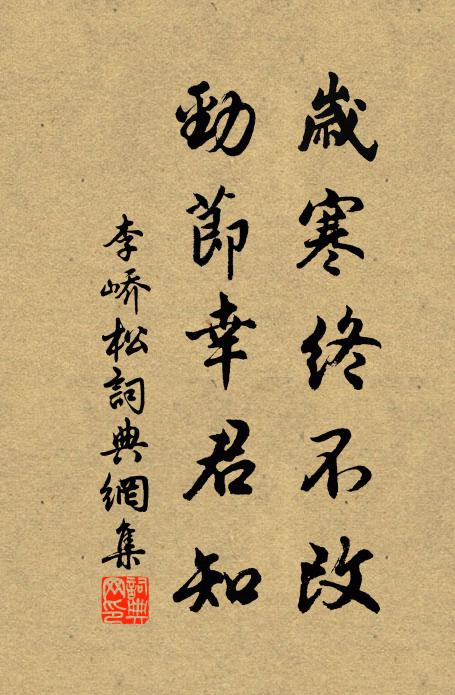 歲寒終不改
勁節幸君知
李嶠松詞典網集
詞典网印